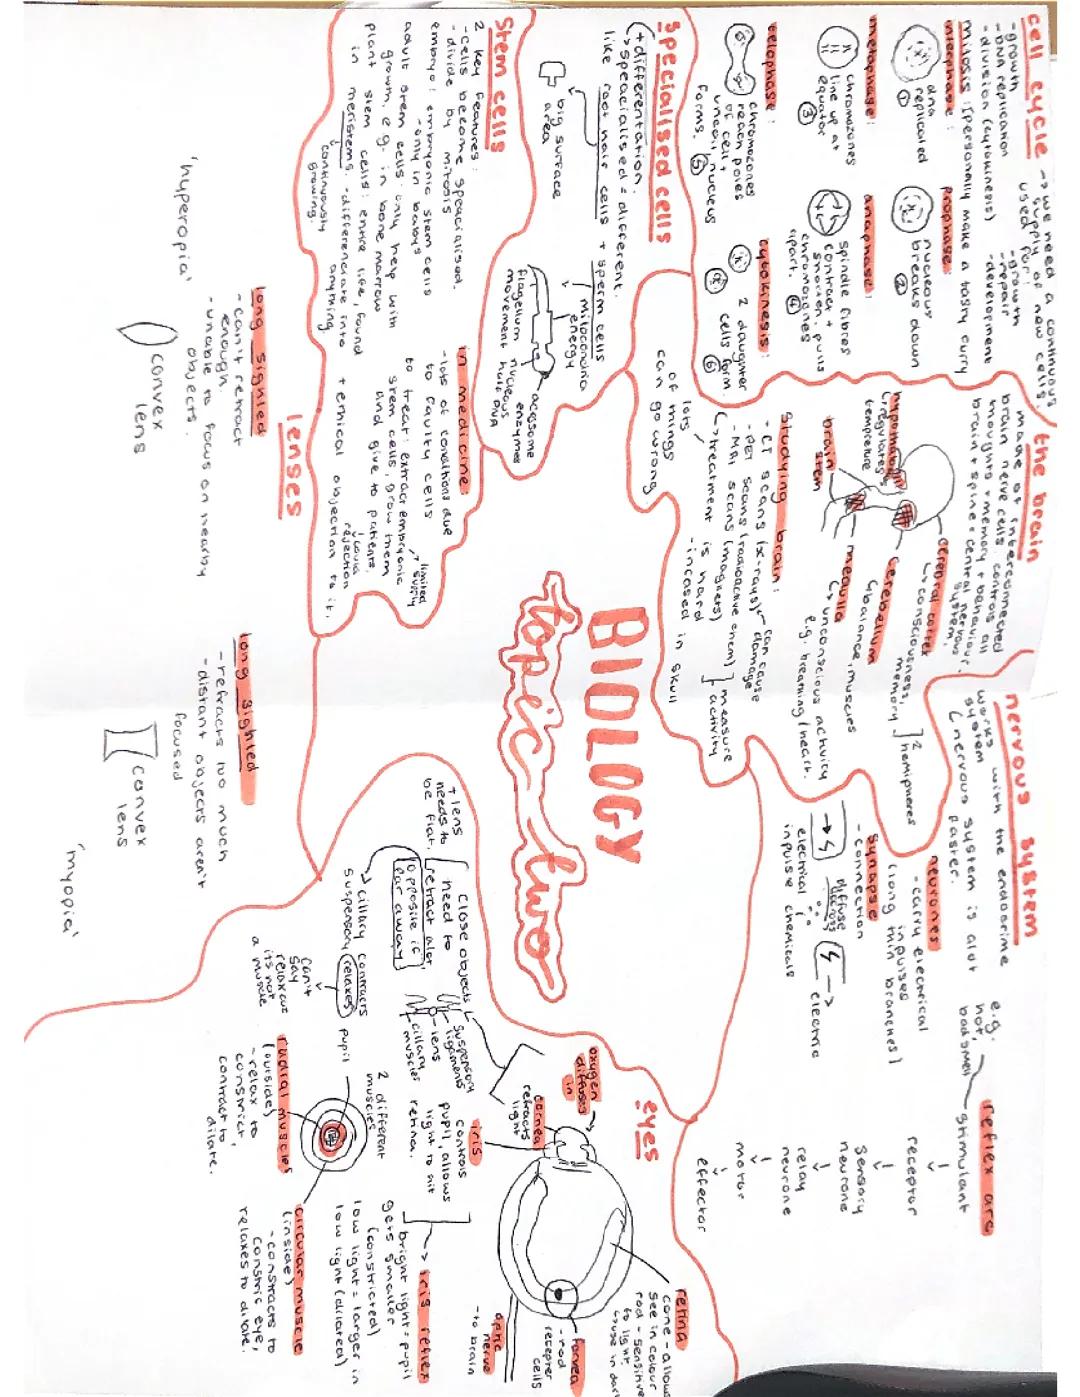 BIOLOGY
topic two
cell cycle
→ we need a continuous
supply of new cells.
used for:
- growth
- DNA replication
- division (cytokinesis)
- growth
- repair
- development
mitosis: Ipersonally make a tasty curry
interphase:
dna
replicated
①
prophase:
nucleous
breaks down
②
metaphase:
chromozones
line up at
equator
③
anaphase:
spindle fibres
contract +
shorten. pulls
chromozones
apart. ④
telophase:
chromozones
reach poles
of cell +
nucleus
forms. ⑤
cytokinesis:
2 daughter
cells form.
⑥
the brain
made of interconnected
brain nerve cells. controls all
thoughts + memory + behaviour.
brain + spine = central nervous
system.
cerebral cortex
↳ consciousness,
memory
] 2
hemipheres
cerebellum
↳ balance, muscles
medulla
↳ unconscious activity
e.g. breathing / heart.
hypothalamus
↳ regulates
tempreture
brain
stem
studying brain:
- CT scans (x-rays)
can cause
damage
- PET scans (radioactive chem)
- MRI scans (magnets)
] measure
activity
↳ treatment is hard
- incased in skull
lots
of
things
can go wrong
nervous system
works with the endocrine
system
(nervous system is alot
faster.
neurones
- carry electrical
inpulses
(long thin branches)
synapse
- connection
diffuse
across
electrical
inpulse
chemicals
electric
reflex arc
e.g.
hot,
bad smell
stimulant
↓
receptor
↓
sensory
neurone
↓
relay
neurone
↓
motor
↓
effector
specialised cells
(+ differentation.
↳ speacialised = different.
like root hair cells + sperm cells
big surface
area
mitocondria
energy
acrosome
enzymes
nucleous
half DNA
flagellum
movement
Stem cells
2 key features:
- cells become speacialised.
- divide by mitosis
embryo: embryonic stem cells
- only in babys
adult stem cells: only help with
growth, e.g. in bone marrow
plant stem cells: entire life, found
in meristems. - differenciate into
anything
continuously
growing.
in medicine
- lots of conditions due
to faulty cells
to treat: extract embryonic
stem cells, grow them
and give to patients.
limited
supply
could
rejection
+ ethical objection to it.
lenses
long sighted
- can't refract
enough.
- unable to focus on nearby
objects.
convex
lens
'hyperopia'
long sighted
- refracts too much
- distant objects aren't
focused
convex
lens
'myopia'
eyes
oxygen
diffuses
in
cornea
refracts
light
iris
controls
pupil, allows
light to hit
retina.
retina
cone - allows
see in colour
rod - sensitive
to light
↳ use in dark
forvea
- rod
recepter
cells
optic
nerve
- to brain
close objects
need to
refract alot
(opposite if
far away)
+ lens
needs to
be flat.
suspensory
ligiments
lens
cillary
muscles
→ cillary contracts
suspensory relaxes
can't
say
relax cus
its not
a muscle
→ iris reflex
bright light = pupil
gets smaller
(constricted)
low light = larger in
low light (dilated)
2 different
muscles
pupil
radial muscles
(outside)
- relax to
constrict,
contract to
dilate.
circular muscle
(inside)
- constracts to
constric eye,
relaxes to dilate.